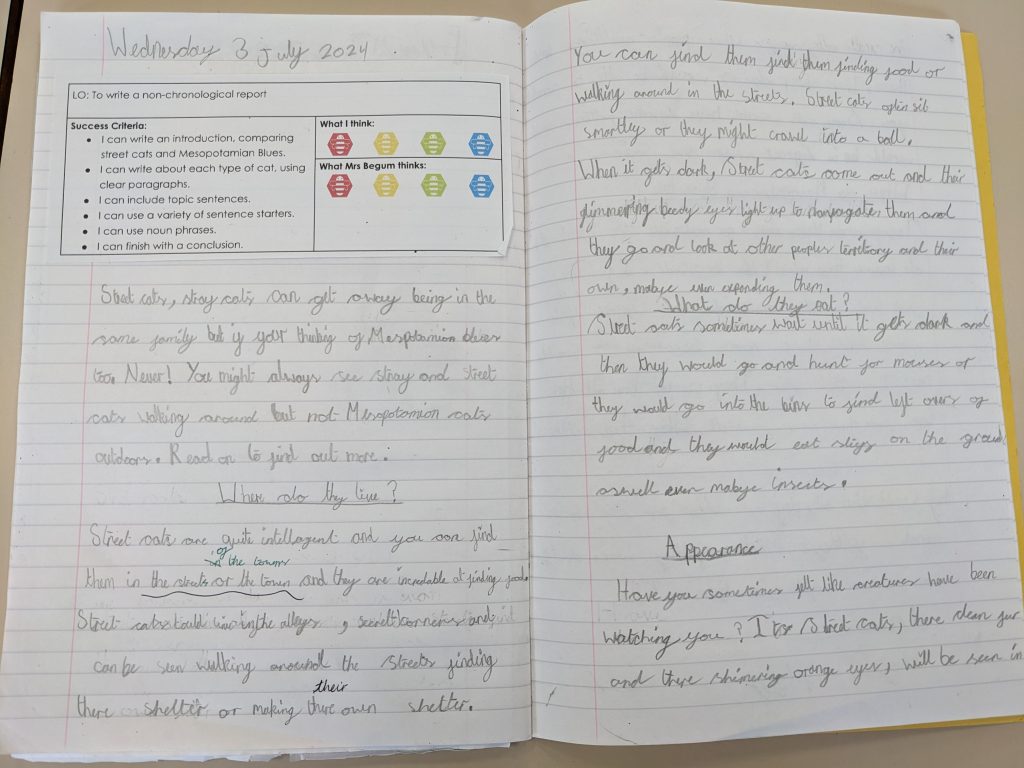 Wednesday 3 july 2024
LO: To write a non-chronological report
Success Criteria:
• I can write an introduction, comparing
street cats and Mesopotamian Blues.
• I can write about each type of cat, using
clear paragraphs.
• I can include topic sentences.
• I can use a variety of sentence starters.
• I can use noun phrases.
• I can finish with a conclusion.
What I think:
What Mrs Begum thinks:
Street cats, stray cats can get away being in the
same family but if your thinking of Mesopotamion blues
too. Never! You might always see stray and street
cats walking around but not Mesopotomion cats
outdoors. Read on to find out more.
Where do they live?
Street cats are quite intellagent and you can find
of the town
them in the streets or the town and they are incredable at finding food.
Street cats could live in the alleys, secret corners and
can be seen walking around the streets finding
their
there shelter or making there own shelter.
You can find them find them finding food or
walking around in the streets. Street cats often sit
smartley or they might crawl into a ball.
When it gets dark, Street cats come out and their
glimmering beedy eyes light up to them and
they go and look at other peoples territiory and their
own, mabye even expanding them.
What do they eat?
Street cats sometimes wait until it gets dark and
then they would go and hunt for mouses or
they would go into the bins to find left overs of
food and they would eat on the ground
aswell even mabye insects.
Appearance
Have you sometimes felt like creatures have been
watching you? Its Street cats, there clean fur
and there shimering orange eyes, will be seen in